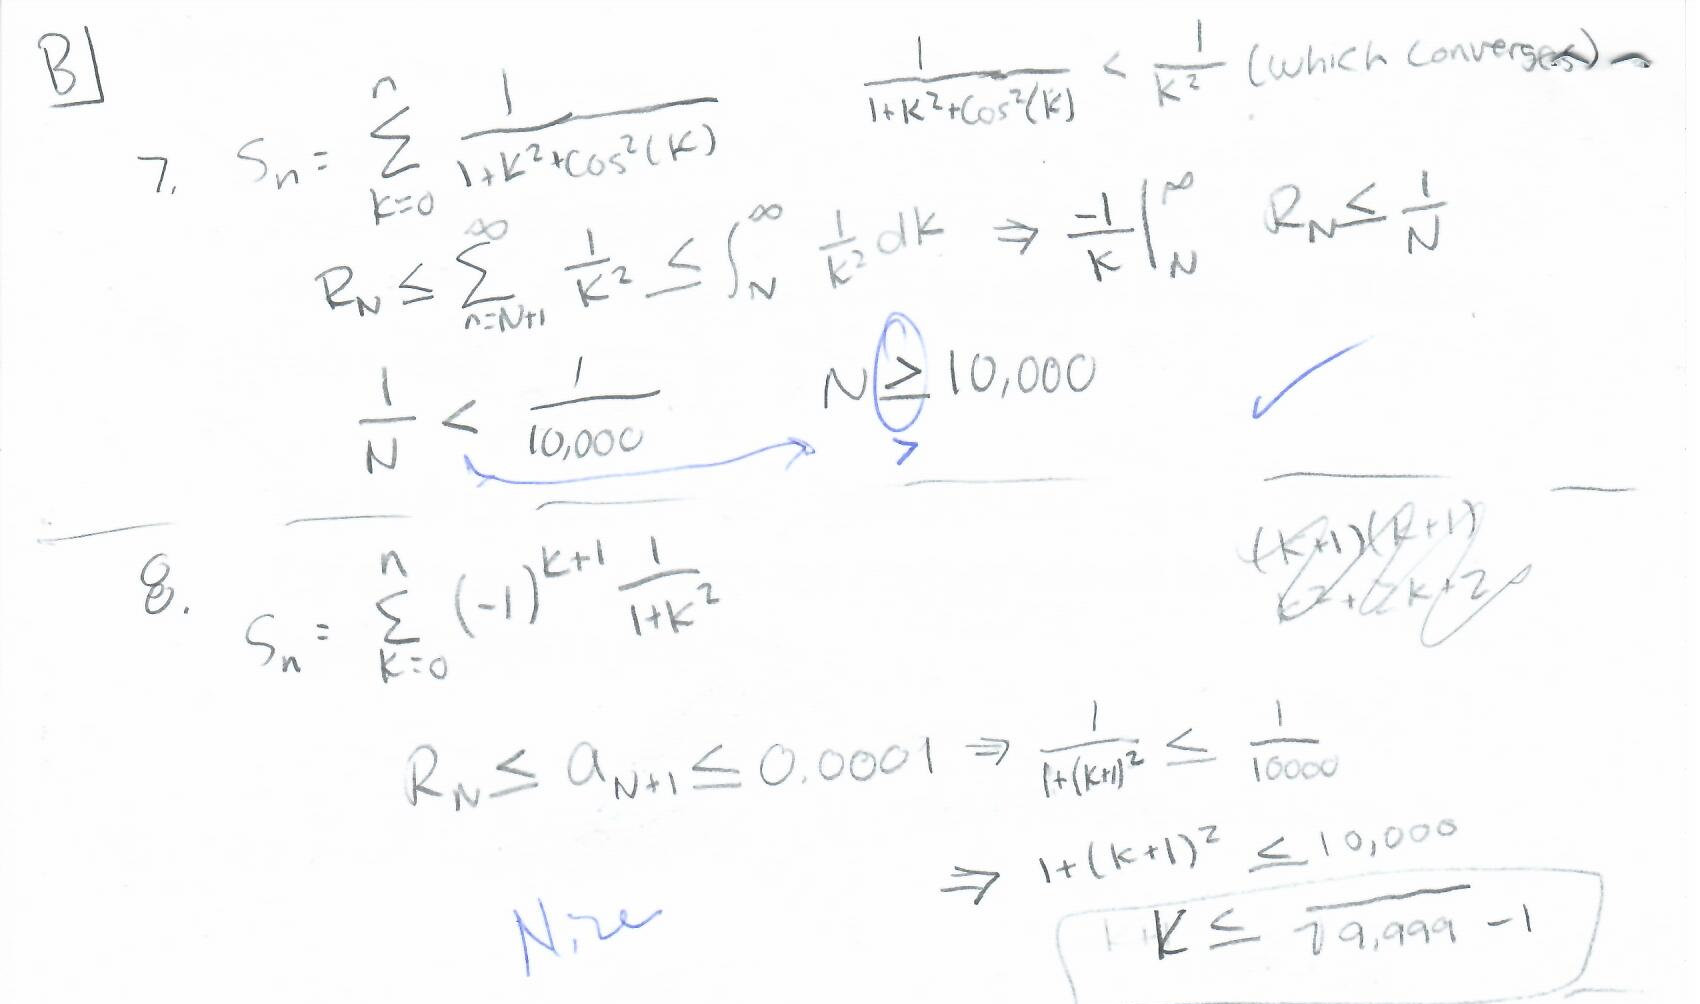 B
7. Sₙ = ∑_{k=0}^{n} 1/(1+k²+cos²(k))    1/(1+k²+cos²(k)) < 1/k² (which converges)
R_N ≤ ∑_{n=N+1}^{∞} 1/k² ≤ ∫_N^∞ 1/k² dk ⇒ -1/k |_N^∞    R_N ≤ 1/N
1/N < 1/10,000    N ≥ 10,000 ✓
>
(k+1)(k+1)
k²+2k+2
8. Sₙ = ∑_{k=0}^{n} (-1)^{k+1} 1/(1+k²)
R_N ≤ a_{N+1} ≤ 0.0001 ⇒ 1/(1+(k+1)²) ≤ 1/10000
⇒ 1+(k+1)² ≤ 10,000
k ≤ √9,999 - 1
Nice